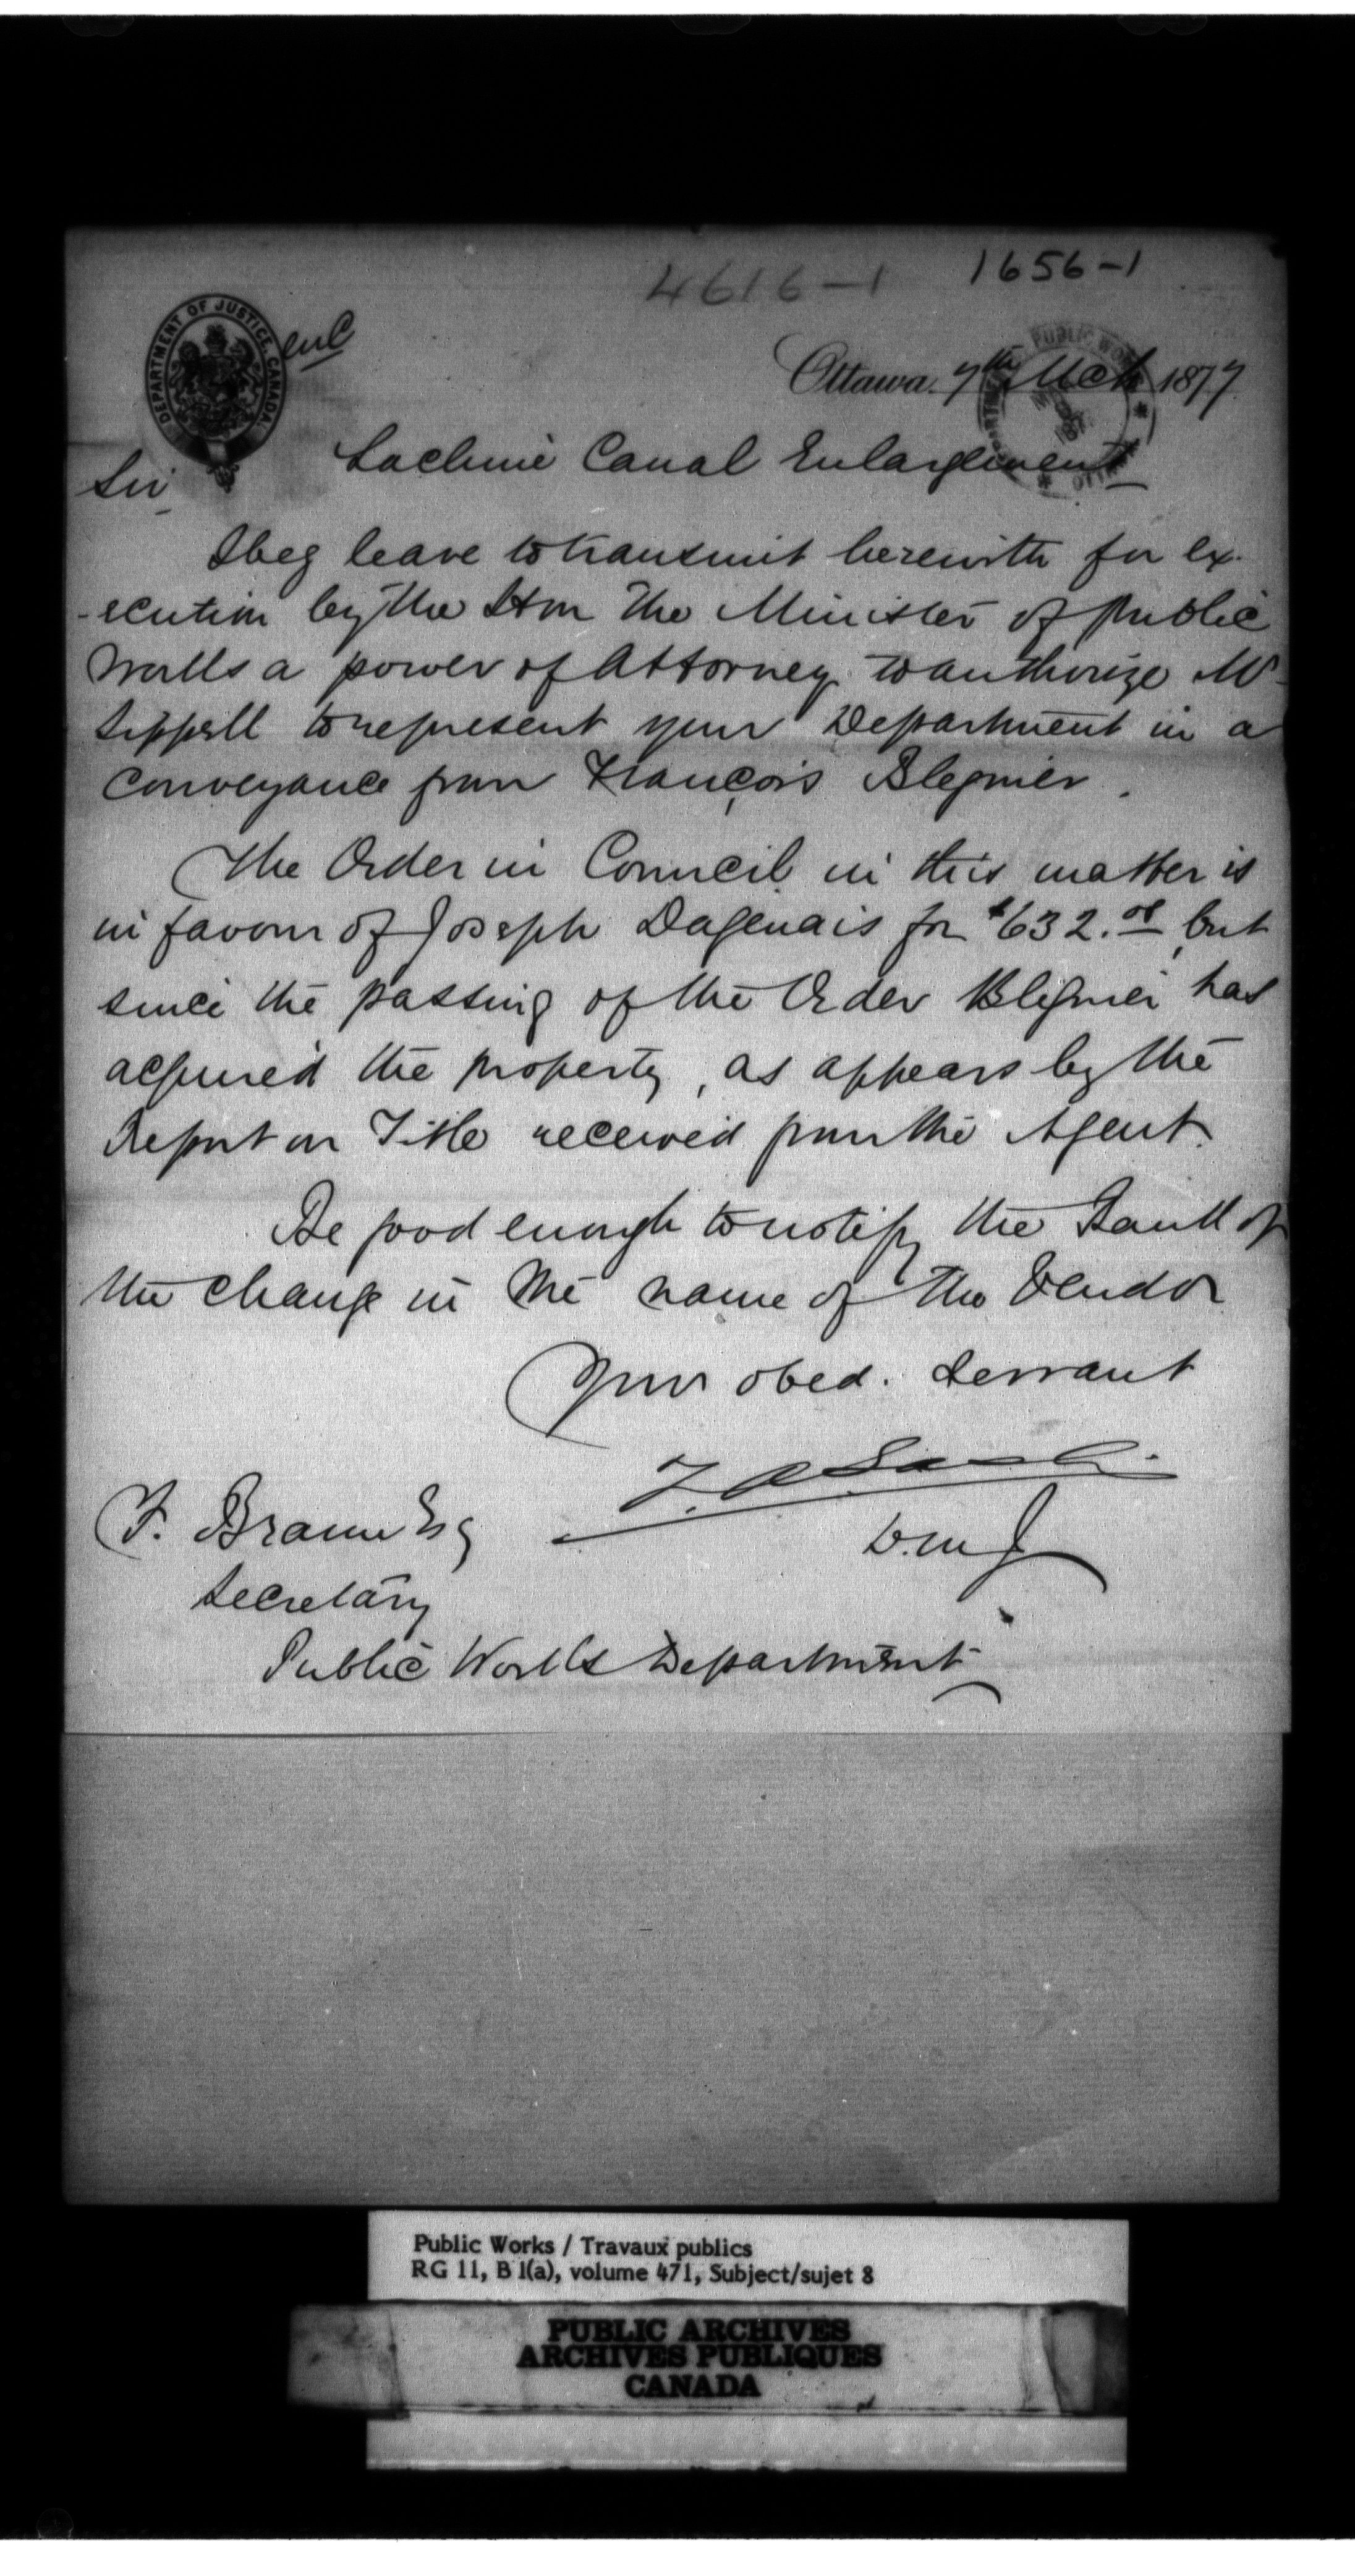 4616-1
1656-1
DEPARTMENT OF JUSTICE, CANADA.
enc
Ottawa. 7th Mch 1877
Lachine Canal Enlargement
Sir
I beg leave to transmit herewith for ex-
-ecution by the Hon The Minister of Public
Works a power of Attorney to authorize Mr
Sippell to represent your Department in a
Conveyance from François Blegnier.
The Order in Council in this matter is
in favour of Joseph Dagenais for $632.00 but
since the passing of the Order Blegnier has
acquired the property, as appears by the
Report on Title received from the Agent.
Be good enough to notify the Bank of
the change in the name of the Vendor
Your obed. Servant
Z. A. Lash
D.M.J
F. Braun Esq
Secretary
Public Works Department
Public Works / Travaux publics
RG 11, B 1(a), volume 471, Subject/sujet 8
PUBLIC ARCHIVES
ARCHIVES PUBLIQUES
CANADA